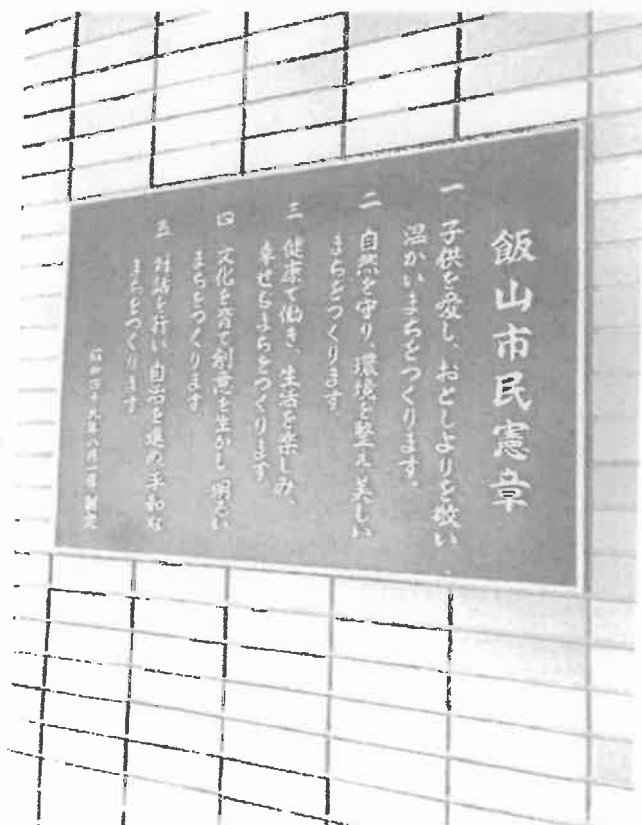 飯山市民憲章
一 子供を愛し、おとしよりを敬い
温かいまちをつくります。
二 自然を守り、環境を整え美しい
まちをつくります
三 健康で働き、生活を楽しみ、
幸せなまちをつくります
四 文化を育て創意を生かし明るい
まちをつくります
五 対話を行い自治を進め平和な
まちをつくります
昭和四十九年八月一日制定